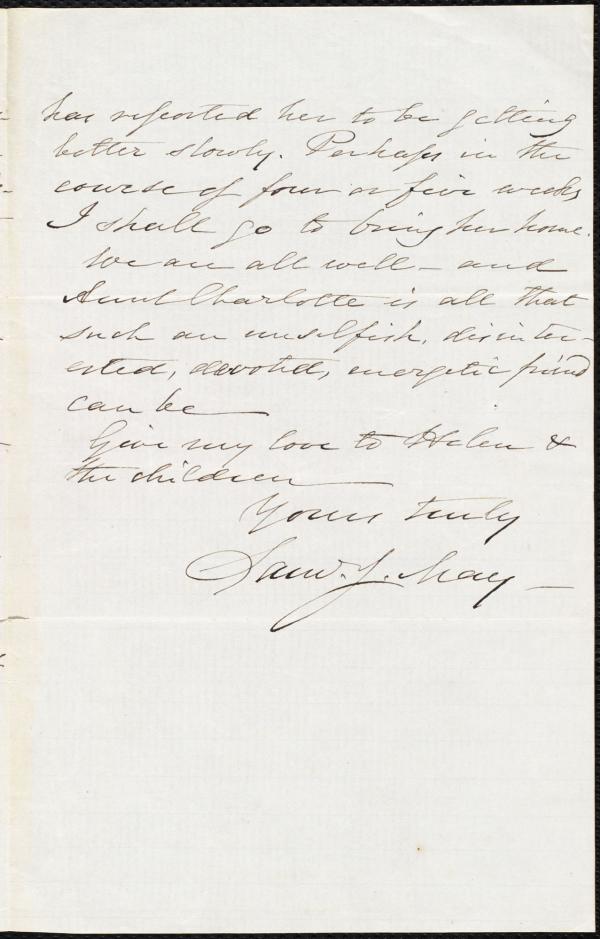 has reported her to be getting
better slowly. Perhaps in the
course of four or five weeks
I shall go to bring her home.
We are all well – and
Aunt Charlotte is all that
such an unselfish, disinter-
ested, devoted, energetic friend
can be
Give my love to Helen &
the children
Yours truly
Saml. J. May –